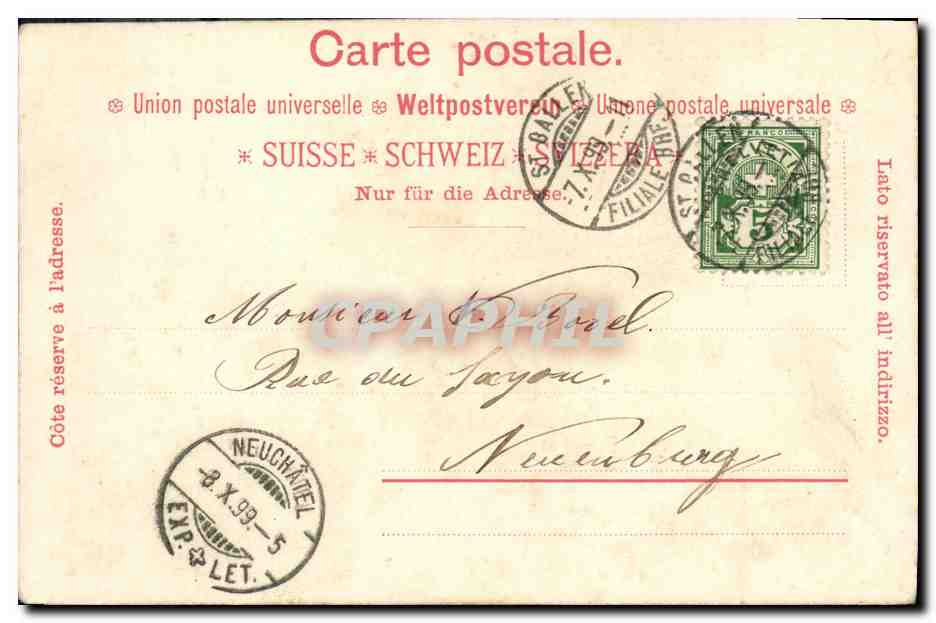 Carte postale.
❊ Union postale universelle ❊ Weltpostverein ❊ Unione postale universale ❊
* SUISSE * SCHWEIZ * SVIZZERA *
Nur für die Adresse.
ST. GALLEN
-7.X.99.-11
FILIALE BRG.
FRANCO
HELVETIA
5
ST. GALLEN
FILIALE
Côte réserve à l'adresse.
Lato riservato all' indirizzo.
CPAPHIL
Monsieur
Rue du Seyon.
Neuenburg
NEUCHÂTEL
-8.X.99.-5
EXP. LET.